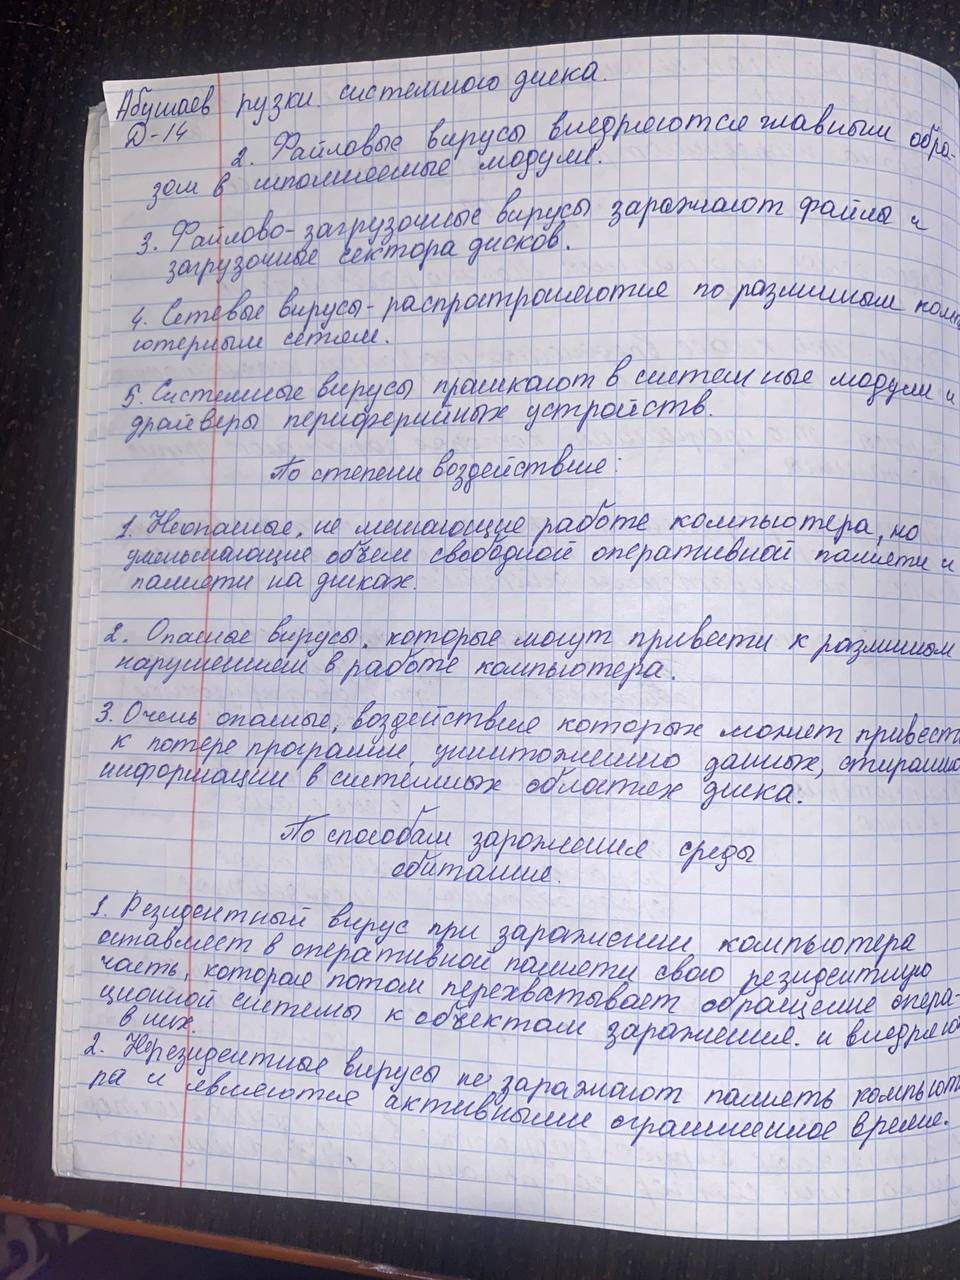 Абушаев рузки системного диска.
Д-14
2. Файловые вирусы внедряются главным обра-
зом в исполняемые модули.
3. Файлово-загрузочные вирусы заражают файлы и
загрузочные сектора дисков.
4. Сетевые вирусы - распространяются по различным комп
ютерным сетям.
5. Системные вирусы проникают в системные модули и
драйверы периферийных устройств.
По степени воздействия:
1. Неопасные, не мешающие работе компьютера, но
уменьшающие объем свободной оперативной памяти и
памяти на дисках.
2. Опасные вирусы, которые могут привести к различным
нарушениям в работе компьютера.
3. Очень опасные, воздействие которых может привести
к потере программ, уничтожению данных, стиранию
информации в системных областях диска.
По способам заражения среды
обитания.
1. Резидентный вирус при заражении компьютера
оставляет в оперативной памяти свою резидентную
часть, которая потом перехватывает обращение опера-
ционной системы к объектам заражения. и внедряю
в них.
2. Нерезидентные вирусы не заражают память компьют
ра и являются активными ограниченное время.